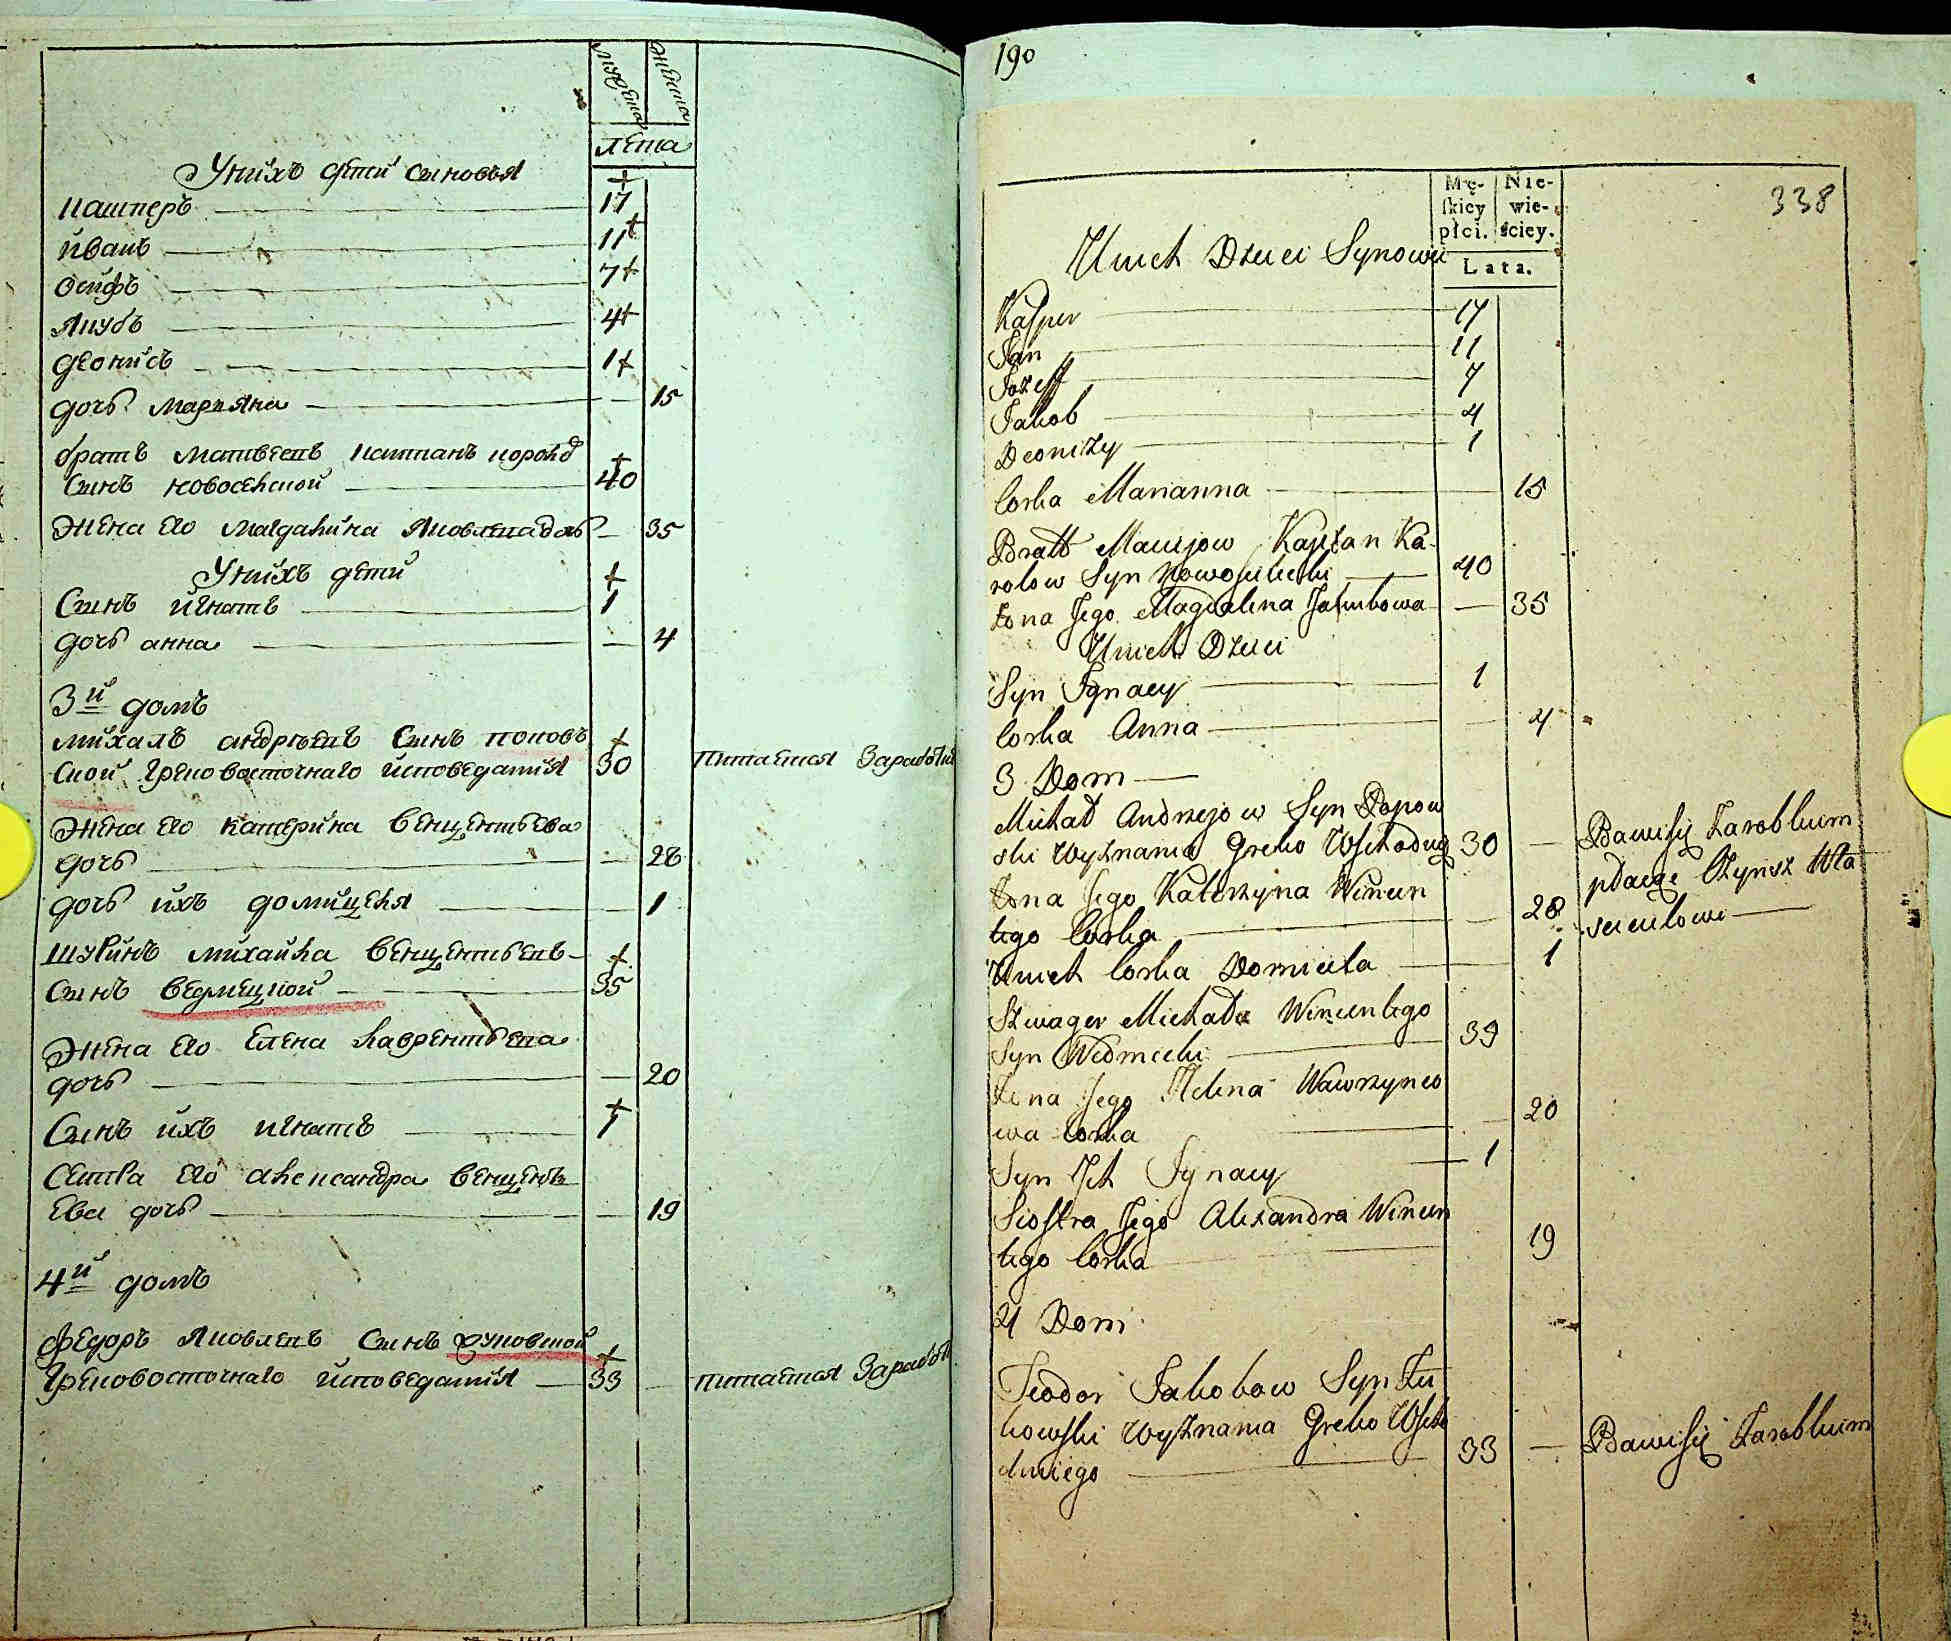 мужеска женска
лета
У нихъ дети сыновья
Кашперъ 17
Иванъ 11
Осифъ 7
Якубъ 4
Деонисъ 1
дочь Марьяна 15
братъ Матвеевъ
сынъ Новосельской 40
жена его Магдалина Яковлева дочь 35
У нихъ дети
Сынъ Игнатъ 1
дочь Анна 4
3й домъ
Михалъ Андрѣевъ Сынъ Поповъ
ской Грековосточнаго исповедания 30 питается Заработк
жена его Катерина Венцентьева
дочь 28
дочь ихъ Домицеля 1
Шуринъ Михайла Венцентьевъ
Сынъ Ведмецкой 35
жена его Елена Лаврентьева
дочь 20
Сынъ ихъ Игнатъ 1
Сестра его Александра Венценть
ева дочь 19
4й домъ
Федоръ Яковлевъ Сынъ Жуковской
Грековосточнаго исповедания 33 питается Заработ
190
338
Mę- Nie-
ſkiey wie-
płci. ściey.
Lata.
Unich Dzieci Synowie
Kasper 17
Jan 11
Jozeff 7
Jakob 4
Deonizy 1
Corka Marianna 15
Bratt Maciejow Kajetan Ka-
rolow Syn Nowosielecki 40
Zona Jego Magdalena Jakubowa 35
Unich Dzieci
Syn Ignacy 1
Corka Anna 4
3 Dom
Michał Andrzejow Syn Popow
ski Wyznania Greko Wschodnieg 30 Bawi się Zarobkiem
płacąc Czynsz Wła
scicielowi
Zona Jego Katerzyna Wincen
tego Corka 28
Unich Corka Domicela 1
Szwager Michała Wincentego
Syn Wiedmiecki 39
Zona Jego Helena Wawrzynco
wa Corka 20
Syn Ich Ignacy 1
Siostra Jego Alexandra Wincen
tego Corka 19
4 Dom
Teodor Jakobow Syn Zu
kowski Wyznania Greko Wscho
dniego 33 Bawi się Zarobkiem